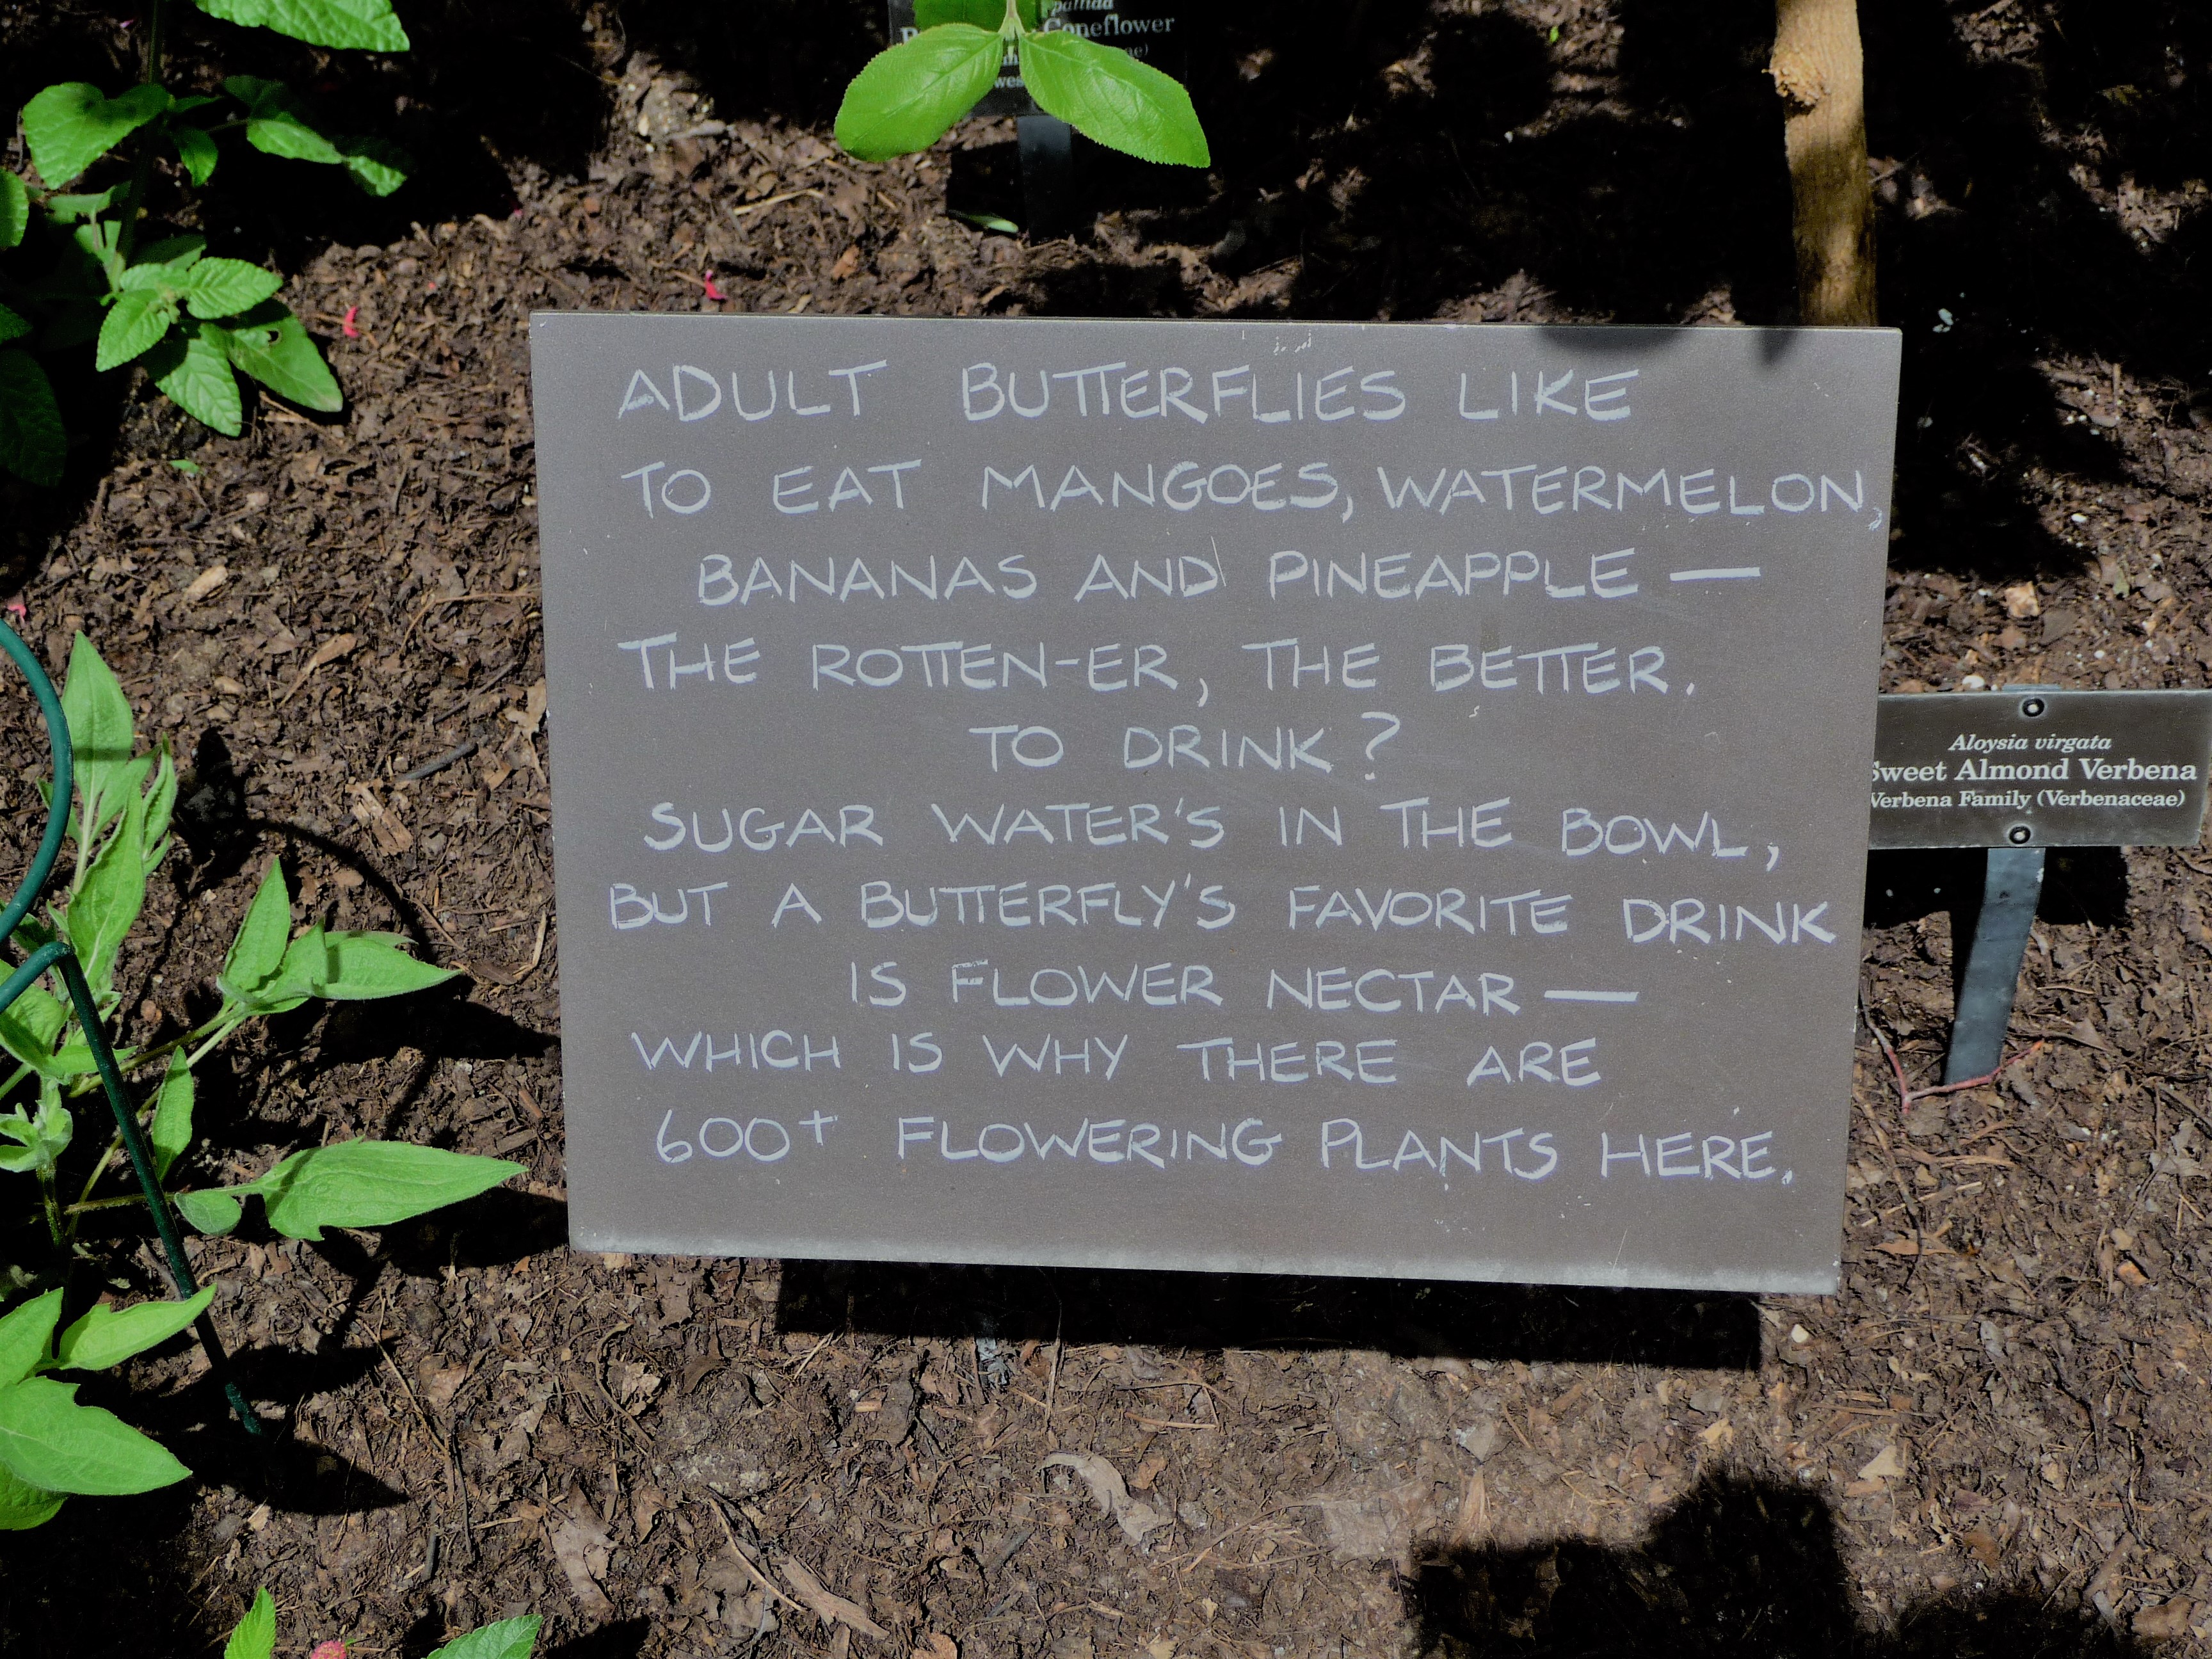 pallida
Coneflower
ADULT BUTTERFLIES LIKE
TO EAT MANGOES, WATERMELON,
BANANAS AND PINEAPPLE —
THE ROTTEN-ER, THE BETTER.
TO DRINK?
SUGAR WATER'S IN THE BOWL,
BUT A BUTTERFLY'S FAVORITE DRINK
IS FLOWER NECTAR —
WHICH IS WHY THERE ARE
600+ FLOWERING PLANTS HERE.
Aloysia virgata
Sweet Almond Verbena
Verbena Family (Verbenaceae)